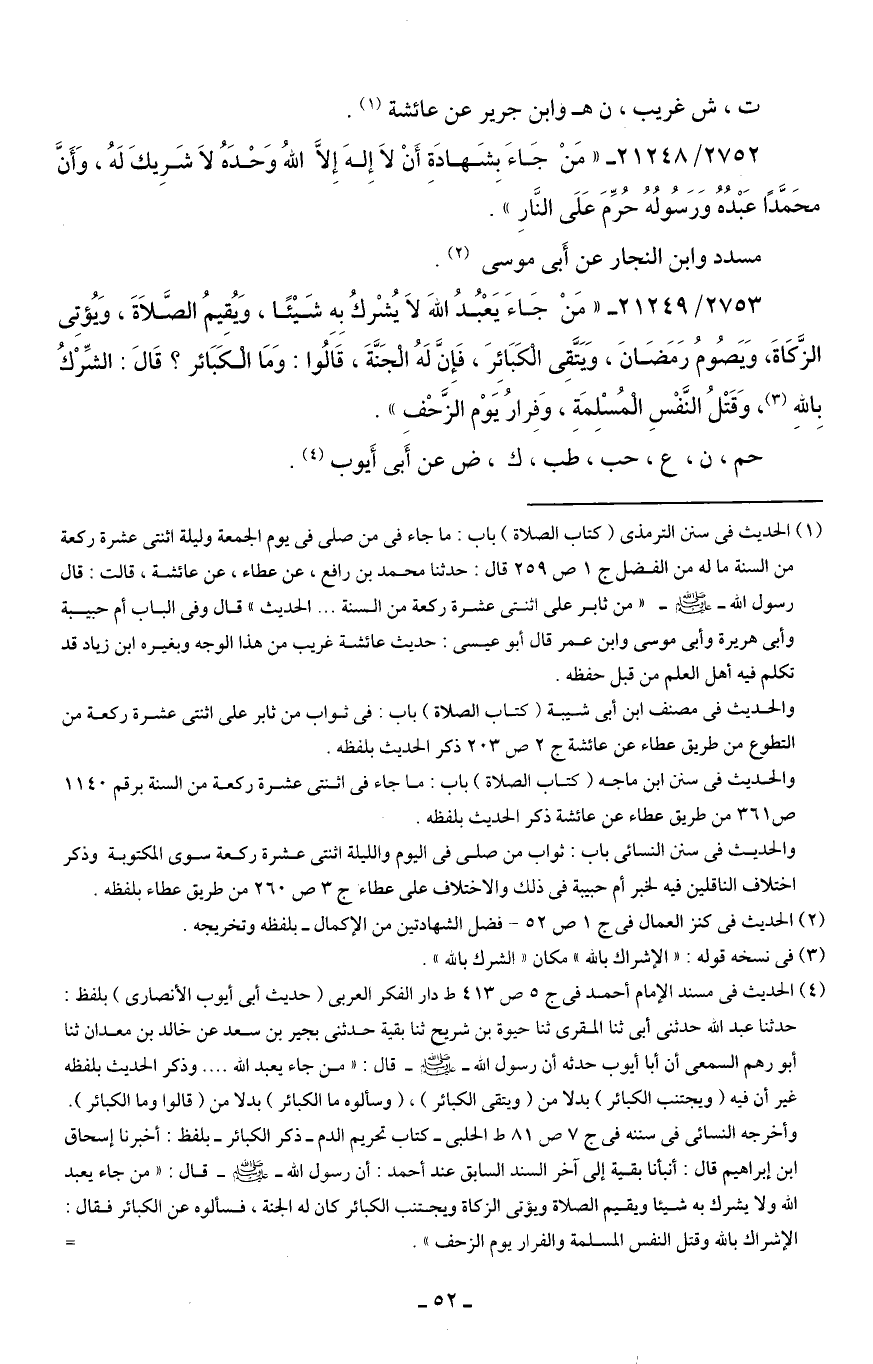 ت ، ش غريب ، ن هـ وابن جرير عن عائشة (١) .
٢١٢٤٨/٢٧٥٢ـ « مَنْ جَاءَ بِشَهَادَةِ أَنْ لاَ إِلهَ إِلاَّ اللهُ وَحْدَهُ لاَ شَرِيكَ لَهُ ، وَأَنَّ
محَمَّدًا عَبْدُهُ وَرَسُولُهُ حُرِّمَ عَلَى النَّارِ » .
مسدد وابن النجار عن أَبى موسى (٢) .
٢١٢٤٩/٢٧٥٣ـ « مَنْ جَاءَ يَعْبُدُ اللهَ لاَ يُشْرِكُ بِهِ شَيْئًا ، وَيُقِيمُ الصَّلاَةَ ، وَيُؤتِى
الزَّكَاةَ، وَيَصُومُ رَمَضَانَ ، وَيَتَّقِى الْكَبَائِرَ ، فَإِنَّ لَهُ الْجَنَّةَ ، قَالُوا : وَمَا الْكَبَائِر ؟ قَالَ : الشِّرْكُ
بِاللهِ (٣)، وَقَتْلُ النَّفْسِ الْمُسْلِمَةِ ، وَفِرارُ يَوْمِ الزَّحْفِ » .
حم ، ن ، ع ، حب ، طب ، ك ، ض عن أَبى أَيوب (٤) .
(١) الحديث فى سنن الترمذى ( كتاب الصلاة ) باب : ما جاء فى من صلى فى يوم الجمعة وليلة اثنتى عشرة ركعة
من السنة ما له من الفضل ج ١ ص ٢٥٩ قال : حدثنا محمد بن رافع ، عن عطاء ، عن عائشة ، قالت : قال
رسول الله ـ ﷺ ـ « من ثابر على اثنتى عشرة ركعة من السنة ... الحديث » قال وفى الباب أم حبيبة
وأبى هريرة وأبى موسى وابن عمر قال أبو عيسى : حديث عائشة غريب من هذا الوجه وبغيره ابن زياد قد
تكلم فيه أهل العلم من قبل حفظه .
والحديث فى مصنف ابن أبى شيبة ( كتاب الصلاة ) باب : فى ثواب من ثابر على اثنتى عشرة ركعة من
التطوع من طريق عطاء عن عائشة ج ٢ ص ٢٠٣ ذكر الحديث بلفظه .
والحديث فى سنن ابن ماجه ( كتاب الصلاة ) باب : ما جاء فى اثنتى عشرة ركعة من السنة برقم ١١٤٠
ص٣٦١ من طريق عطاء عن عائشة ذكر الحديث بلفظه .
والحديث فى سنن النسائى باب : ثواب من صلى فى اليوم والليلة اثنتى عشرة ركعة سوى المكتوبة وذكر
اختلاف الناقلين فيه لخبر أم حبيبة فى ذلك والاختلاف على عطاء ج ٣ ص ٢٦٠ من طريق عطاء بلفظه .
(٢) الحديث فى كنز العمال فى ج ١ ص ٥٢ - فضل الشهادتين من الإكمال ـ بلفظه وتخريجه .
(٣) فى نسخه قوله : « الإشراك بالله » مكان « الشرك بالله » .
(٤) الحديث فى مسند الإمام أحمد فى ج ٥ ص ٤١٣ ط دار الفكر العربى ( حديث أبى أيوب الأنصارى ) بلفظ :
حدثنا عبد الله حدثنى أبى ثنا المقرى ثنا حيوة بن شريح ثنا بقية حدثنى بجير بن سعد عن خالد بن معدان ثنا
أبو رهم السمعى أن أبا أيوب حدثه أن رسول الله ـ ﷺ ـ قال : « من جاء يعبد الله .... وذكر الحديث بلفظه
غير أن فيه ( ويجتنب الكبائر ) بدلا من ( ويتقى الكبائر ) ، ( وسألوه ما الكبائر ) بدلا من ( قالوا وما الكبائر ).
وأخرجه النسائى فى سننه فى ج ٧ ص ٨١ ط الحلبى ـ كتاب تحريم الدم ـ ذكر الكبائر ـ بلفظ : أخبرنا إسحاق
ابن إبراهيم قال : أنبأنا بقية إلى آخر السند السابق عند أحمد : أن رسول الله ـ ﷺ ـ قال : « من جاء يعبد
الله ولا يشرك به شيئا ويقيم الصلاة ويؤتى الزكاة ويجتنب الكبائر كان له الجنة ، فسألوه عن الكبائر فقال :
الإشراك بالله وقتل النفس المسلمة والفرار يوم الزحف » . =
ـ ٥٢ ـ